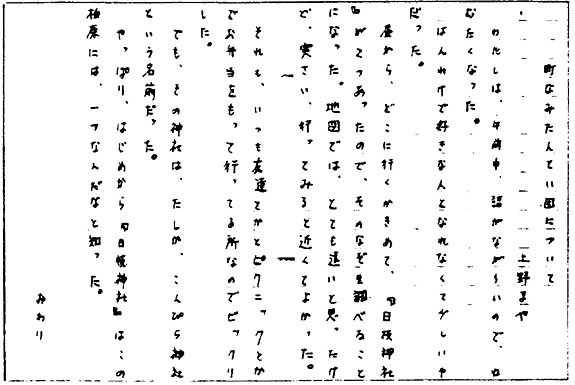 町なみたんてい団について
上野まや
わたしは、午前中、話がながーいので、ね
むたくなった。
はんわけで好きな人となれなくて少しいや
だった。
昼から、どこに行くかきめて、『日枝神社
』が二つあったので、そのなぞを調べること
になった。地図では、とても遠いと思ったけ
ど、実さい、行ってみると近くてよかった。
それも、いつも友達とかとピクニックとか
でお弁当をもって行ってる所なのでビックリ
した。
でも、その神社は、たしか、こんぴら神社
という名前だった。
やっぱり、はじめから『日枝神社』はこの
柏原には、一つなんだなと知った。
おわり